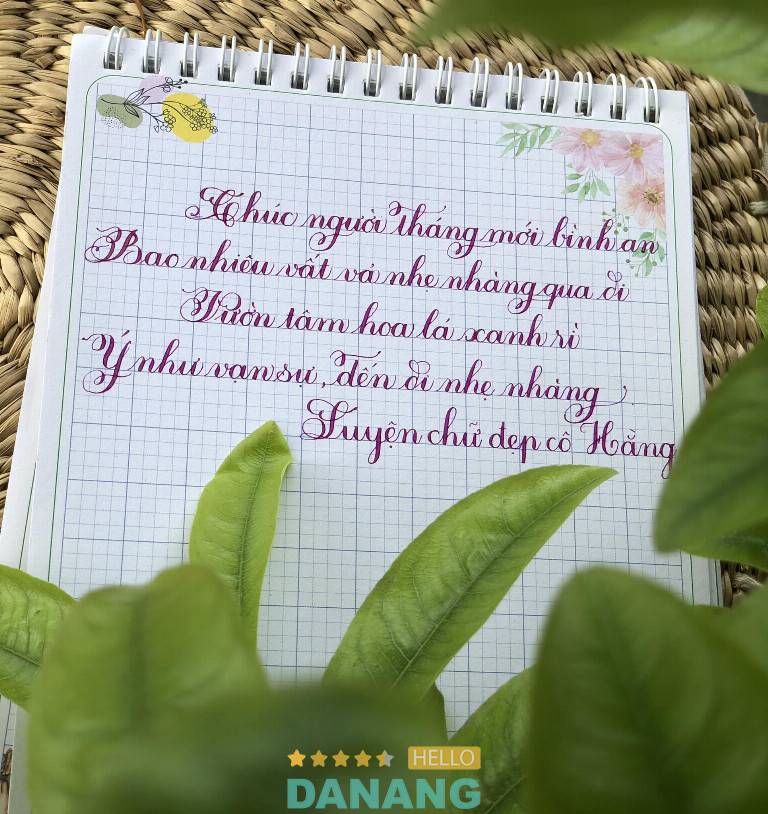 Chúc người tháng mới bình an
Bao nhiêu vất vả nhẹ nhàng qua đi
Vườn tâm hoa lá xanh rì
Ý như vạn sự, đến đi nhẹ nhàng
Luyện chữ đẹp cô Hằng
HELLO
DANANG